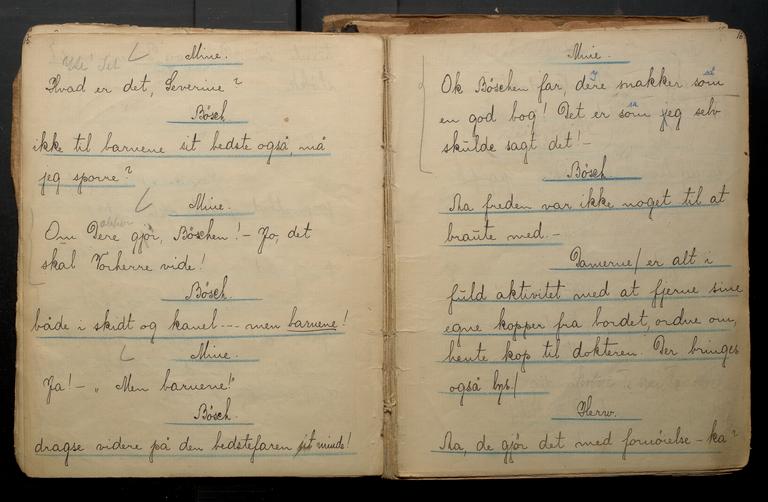 Mine.
Hvad er det, Severine?
Bösch
ikke til barnene sit bedste også, må
jeg spørre?
Mine.
Om Dere gjör, Böschen! - Jo, det
skal Vorherre vide!
Bösch.
både i skidt og kanel --- men barnene!
Mine.
Ja! - "Men barnene!"
Bösch.
dragse videre på den bedstefaren sit minde!
Mine.
Ok Böschen far, dere snakker som
en god bog! Det er som jeg selv
skulde sagt det! -
Bösch.
Aa freden var ikke noget til at
braute med. -
Damerne / er alt i
fuld aktivitet med at fjerne sine
egne kopper fra bordet, ordne om,
hente kop til dokteren. Der bringes
også lys. /
Herw.
Aa, de gjör det med fornöielse - ka?